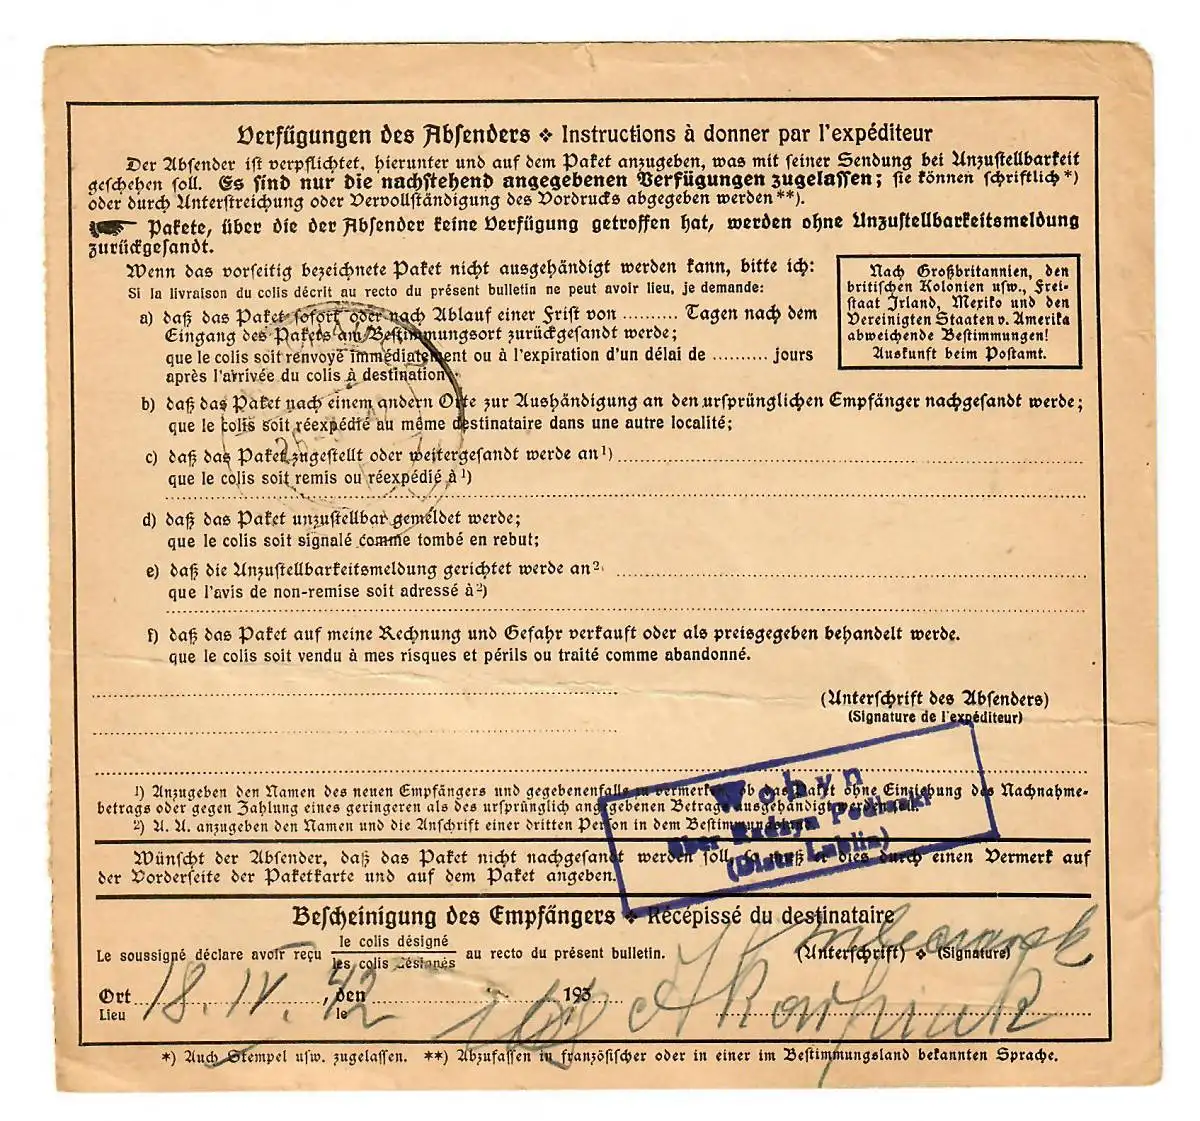 Verfügungen des Absenders ❖ Instructions à donner par l'expéditeur
Der Absender ist verpflichtet, hierunter und auf dem Paket anzugeben, was mit seiner Sendung bei Unzustellbarkeit
geschehen soll. Es sind nur die nachstehend angegebenen Verfügungen zugelassen; sie können schriftlich *)
oder durch Unterstreichung oder Vervollständigung des Vordrucks abgegeben werden **).
Pakete, über die der Absender keine Verfügung getroffen hat, werden ohne Unzustellbarkeitsmeldung
zurückgesandt.
Wenn das vorseitig bezeichnete Paket nicht ausgehändigt werden kann, bitte ich:
Si la livraison du colis décrit au recto du présent bulletin ne peut avoir lieu, je demande:
Nach Großbritannien, den
britischen Kolonien usw., Frei-
staat Irland, Mexiko und den
Vereinigten Staaten v. Amerika
abweichende Bestimmungen!
Auskunft beim Postamt.
a) daß das Paket sofort oder nach Ablauf einer Frist von .......... Tagen nach dem
Eingang des Pakets am Bestimmungsort zurückgesandt werde;
que le colis soit renvoyé immédiatement ou à l'expiration d'un délai de .......... jours
après l'arrivée du colis à destination;
b) daß das Paket nach einem andern Orte zur Aushändigung an den ursprünglichen Empfänger nachgesandt werde;
que le colis soit réexpédié au même destinataire dans une autre localité;
c) daß das Paket zugestellt oder weitergesandt werde an ¹)
que le colis soit remis ou réexpédié à ¹)
d) daß das Paket unzustellbar gemeldet werde;
que le colis soit signalé comme tombé en rebut;
e) daß die Unzustellbarkeitsmeldung gerichtet werde an ²)
que l'avis de non-remise soit adressé à ²)
f) daß das Paket auf meine Rechnung und Gefahr verkauft oder als preisgegeben behandelt werde.
que le colis soit vendu à mes risques et périls ou traité comme abandonné.
(Unterschrift des Absenders)
(Signature de l'expéditeur)
¹) Anzugeben den Namen des neuen Empfängers und gegebenenfalls zu vermerken, ob das Paket ohne Einziehung des Nachnahme-
betrags oder gegen Zahlung eines geringeren als des ursprünglich angegebenen Betrags ausgehändigt werden
²) U. U. anzugeben den Namen und die Anschrift einer dritten Person in dem Bestimmungsland
Wohyn
über Radzyn Podlaski
(Distr. Lublin)
Wünscht der Absender, daß das Paket nicht nachgesandt werden soll, so muß er dies durch einen Vermerk auf
der Vorderseite der Paketkarte und auf dem Paket angeben.
Bescheinigung des Empfängers ❖ Récépissé du destinataire
Le soussigné déclare avoir reçu le colis désigné
les colis désignés au recto du présent bulletin.
(Unterschrift) ❖ (Signature)
Ort 18. IV. 42, den 193
Lieu le
*) Auch Stempel usw. zugelassen. **) Abzufassen in französischer oder in einer im Bestimmungsland bekannten Sprache.